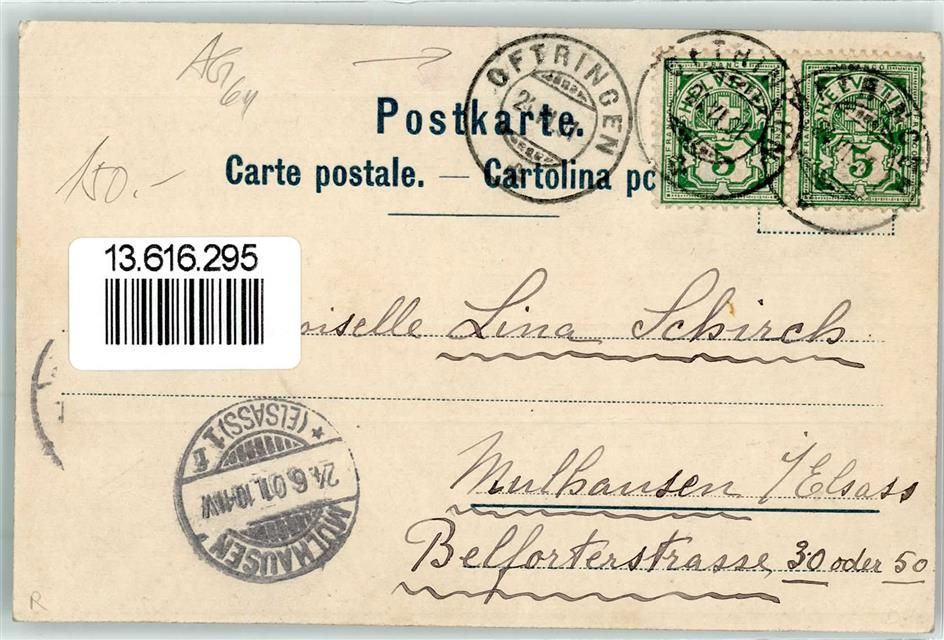 AG/64
→
OFTRINGEN
Postkarte.
150.-
Carte postale. — Cartolina po
FRANCO
HELVETIA
5
5
13.616.295
oiselle Lina Schirch
(ELSASS) 1
24.6.01. 10-11V.
MÜLHAUSEN
Mulhausen i/Elsass
Belforterstrasse 30 oder 50
R